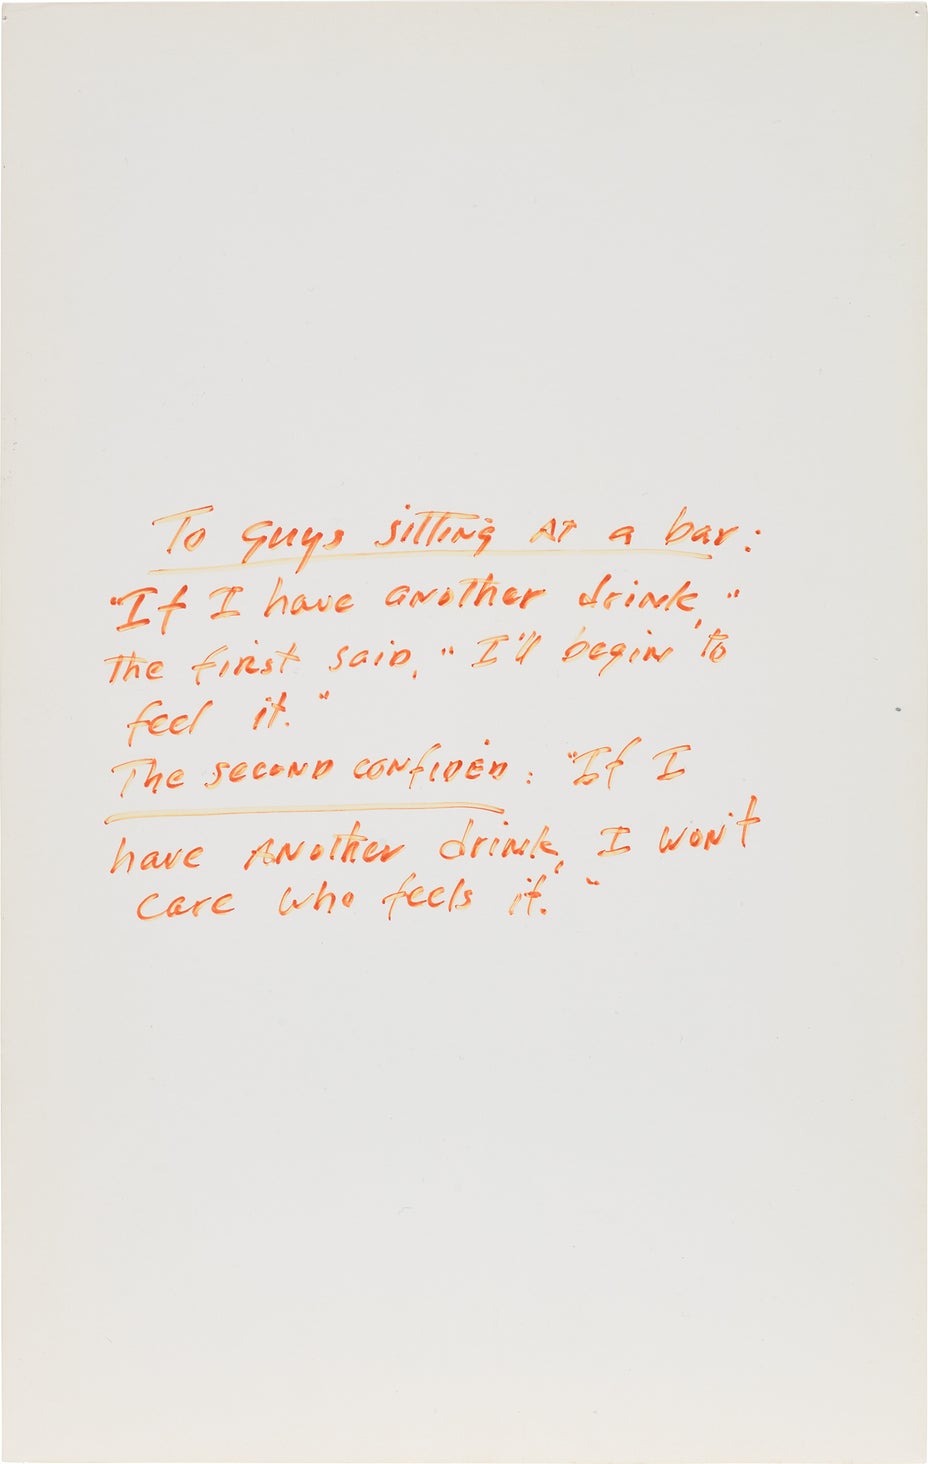 To guys sitting at a bar:
"If I have another drink,"
the first said, "I'll begin to
feel it."
The second confided: "If I
have another drink, I won't
care who feels it."